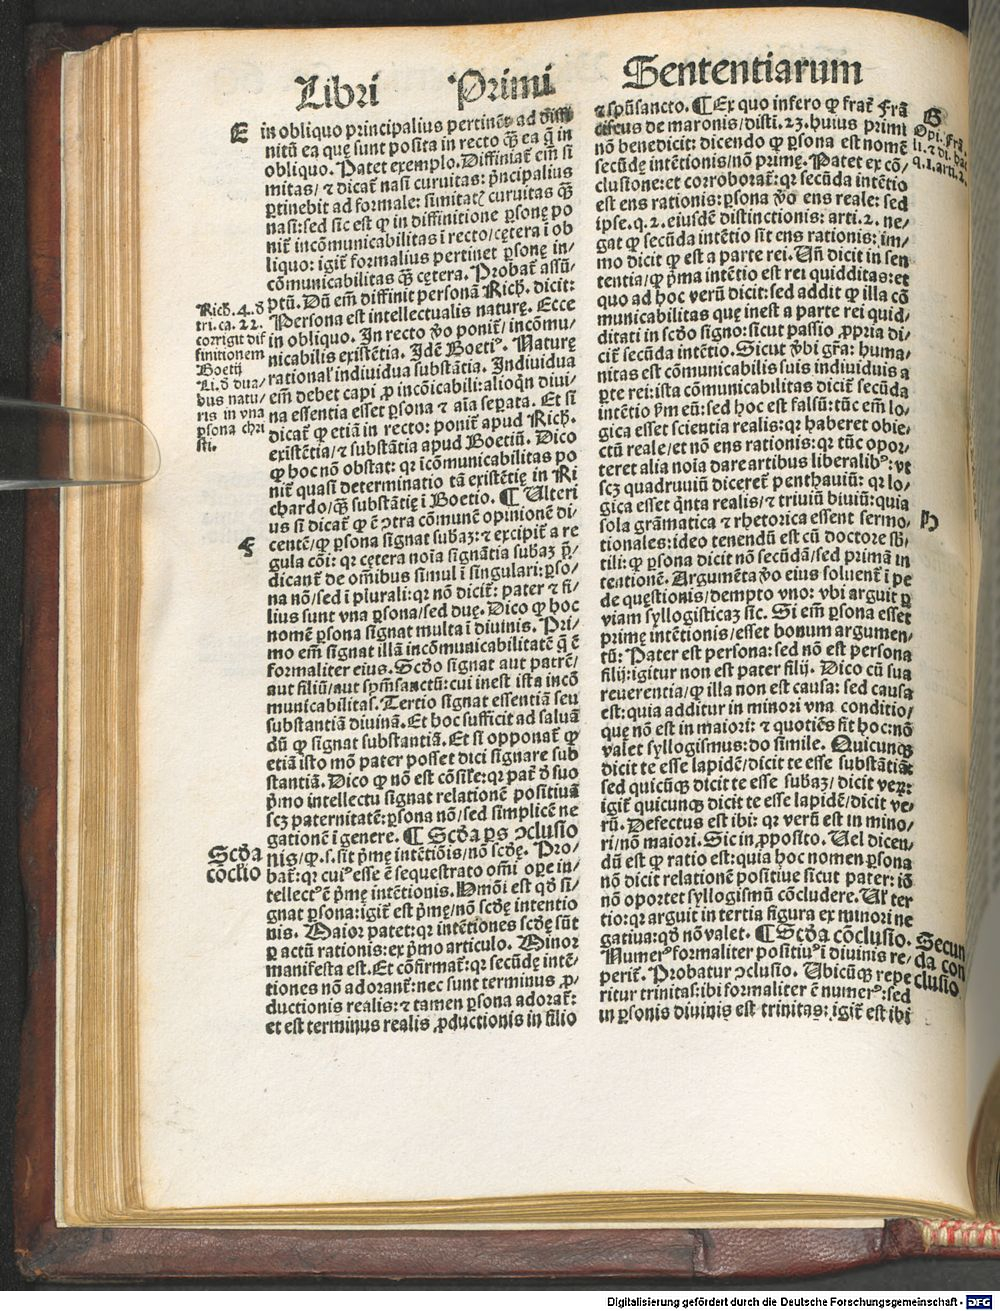 Libri Primi Sententiarum
E
in obliquo principalius pertinēt ad diffi
nitū ea quę sunt posita in recto q̄ꝫ ea q̄ in
obliquo. Patet exemplo. Diffiniat̄ em̄ si
mitas/ ⁊ dicat̄ nasi curuitas: p̄ncipalius
ꝑtinebit ad formale: simitat꞉ curuitas q̄ꝫ
nasi: sed sic est ꝙ in diffinitione ꝑsonę po
nit̄ incōmunicabilitas ī recto/cętera ī ob
liquo: igit̄ formalius pertinet ꝑsonę in-
cōmunicabilitas q̄ꝫ cętera. Probat̄ assū/
ptū. Dū em̄ diffinit personā Rich. dicit:
Persona est intellectualis naturę. Ecce
in obliquo. In recto ꝟo ponit̄/ incōmu/
nicabilis existētia. Idē Boetiꝰ. Naturę
rational' individua substātia. Individua
em̄ debet capi ꝓ incōicabili: alioqn̄ diui/
na essentia esset ꝑsona ⁊ aīa seꝑata. Et si
dicat̄ ꝙ etiā in recto: ponit̄ apud Rich.
existētia/⁊ substātia apud Boetiū. Dico
ꝙ hoc nō obstat: qꝛ īcōmunicabilitas po
nit̄ quasi determinatio tā existētię in Ri
chardo/q̄ꝫ substātię ī Boetio. ¶ Ulteri
us si dicat̄ ꝙ ē ↄtra cōmunē opinionē di/
centē/ꝙ ꝑsona signat subaꝫ: ⁊ excipit̄ a re
gula cōi: qꝛ cętera noīa signātia subaꝫ p̄/
dicant̄ de om̄ibus simul ī singulari: ꝑso/
na nō/sed ī plurali: qꝛ nō dicit̄: pater ⁊ fi/
lius sunt vna ꝑsona/sed duę. Dico ꝙ hoc
nomē ꝑsona signat multa ī diuinis. Pri/
mo em̄ signat illā incōmunicabilitatē q̄ ē
formaliter eius. Scd̄o signat aut patrē/
aut filiū/aut spm̄sanctū: cui inest ista incō
municabilitas. Tertio signat essentiā seu
substantiā diuinā. Et hoc sufficit ad saluā
dū ꝙ signat substantiā. Et si opponat̄ ꝙ
etiā isto mō pater posset dici signare sub
stantiā. Dico ꝙ nō est cōsil'e: qꝛ pat̄ ð suo
p̄mo intellectu signat relationē positiuā
scꝫ paternitatē: ꝑsona nō/sed simplicē ne
gationē ī genere. ¶ Scd̄a ps ↄclusio
nis/ꝙ.s. sit p̄mę intētiōis/nō scd̄ę. Pro/
bat̄: qꝛ cuiꝰ esse ē sequestrato omī oꝑe in/
tellectꝰ ē p̄mę intētionis. Hmōi est qd̄ si/
gnat ꝑsona: igit̄ est p̄mę/nō scd̄ę intentio
nis. Maior patet: qꝛ intētiones scd̄ę sūt
ꝑ actū rationis: ex p̄mo articulo. Minor
manifesta est. Et cōfirmat̄: qꝛ secūdę intē/
tiones nō adorant̄: nec sunt terminus ꝓ/
ductionis realis: ⁊ tamen ꝑsona adorat̄:
et est terminus realis ꝓductionis in filio
Rich. 4. ð
tri. ca. 22.
corrigit dif
finitionem
Boetij
Li. ð dua/
bus natu/
ris in vna
ꝑsona chri
sti.
F
Scd̄a
cōclio
⁊ spūsancto. ¶ Ex quo infero ꝙ frat̄ Frā
ciscus de maronis/disti. 23. huius primi
nō benedicit: dicendo ꝙ ꝑsona est nomē
secūdę intētionis/nō primę. Patet ex cō/
clusione: et corroborat̄: qꝛ secūda intētio
est ens rationis: ꝑsona ꝟo ens reale: sed
ipse. q. 2. eiusdē distinctionis: arti. 2. ne/
gat ꝙ secūda intētio sit ens rationis: im/
mo dicit ꝙ est a parte rei. Un̄ dicit in sen
tentia/ꝙ p̄ma intētio est rei quidditas: et
quo ad hoc verū dicit: sed addit ꝙ illa cō
municabilitas quę inest a parte rei quid/
ditati in scd̄o signo: sicut passio ꝓpria di/
cit̄ secūda intētio. Sicut ꝟbi gr̄a: huma/
nitas est cōmunicabilis suis individuis a
ꝑte rei: ista cōmunicabilitas dicit̄ secūda
intētio ꝑm eū: sed hoc est falsū: tūc em̄ lo/
gica esset scientia realis: qꝛ haberet obie/
ctū reale/et nō ens rationis: qꝛ tūc opor/
teret alia noīa dare artibus liberalibꝰ: vt
scꝫ quadruuiū diceret̄ penthauiū: qꝛ lo/
gica esset q̄nta realis/⁊ triuiū biuiū: quia
sola grāmatica ⁊ rhetorica essent sermo/
tionales: ideo tenendū est cū doctore sb̄/
tili: ꝙ ꝑsona dicit nō secūdā/sed primā in
tentionē. Argumēta ꝟo eius soluent̄ ī pe
de quęstionis/dempto vno: vbi arguit ꝑ
viam syllogisticaꝫ sic. Si em̄ ꝑsona esset
primę intētionis/esset bonum argumen/
tū: Pater est persona: sed nō est persona
filij: igitur non est pater filij. Dico cū sua
reuerentia/ꝙ illa non est causa: sed causa
est: quia additur in minori vna conditio/
que nō est in maiori: ⁊ quotiēs fit hoc: nō
valet syllogismus: do simile. Quicunqꝫ
dicit te esse lapidē/dicit te esse substātiā:
sed quicūqꝫ dicit te esse subaꝫ/ dicit veꝝ:
igit̄ quicunqꝫ dicit te esse lapidē/dicit ve/
rū. Defectus est ibi: qꝛ verū est in mino/
ri/nō maiori. Sic in ꝓposito. Uel dicen/
dū est ꝙ ratio est: quia hoc nomen ꝑsona
nō dicit relationē positive sicut pater: iō
nō oportet syllogismū cōcludere. Ul' ter
tio: qꝛ arguit in tertia figura ex minori ne
gatiua: qd̄ nō valet. ¶ Scd̄a cōclusio.
Numerꝰ formaliter positiuꝰ ī diuinis re/
perit̄. Probatur ↄclusio. Ubicūqꝫ repe
ritur trinitas: ibi formaliter ē numerꝰ: sed
in ꝑsonis diuinis est trinitas: igit̄ est ibi
G
Opi. Frā.
H
Secun
da con
clusio
Digitalisierung gefördert durch die Deutsche Forschungsgemeinschaft - DFG